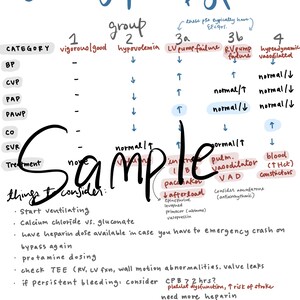 group
cases pts typically have
EF<40%
1 2 3a 3b 4
CATEGORY vigorous/good hypovolemia LV pump failure RV pump failure hyperdynamic vasodilated
BP ↓ ↓ ↓ ↓
CVP ↓ ↑ ↑ normal/↓
PAP ↓ ↑ normal/↓ normal/↓
PAWP ↓ ↑ normal/↓ normal/↓
CO ↓ ↓ ↓ ↑
SVR normal/↑ normal/↑ ↓
Treatment none pulm. vasodilator VAD blood (↑Hct) constrictors
pacemaker
↓ afterload
Sample
things to consider:
- Start ventilating
- Calcium chloride vs. gluconate
- have heparin dose available in case you have to emergency crash on
bypass again
- protamine dosing
- check TEE (RV, LV fxn, wall motion abnormalities, valve leaks
- if persistent bleeding: consider CPB > 2 hrs?
platelet dysfunction, ↑ rise of stroke
need more heparin